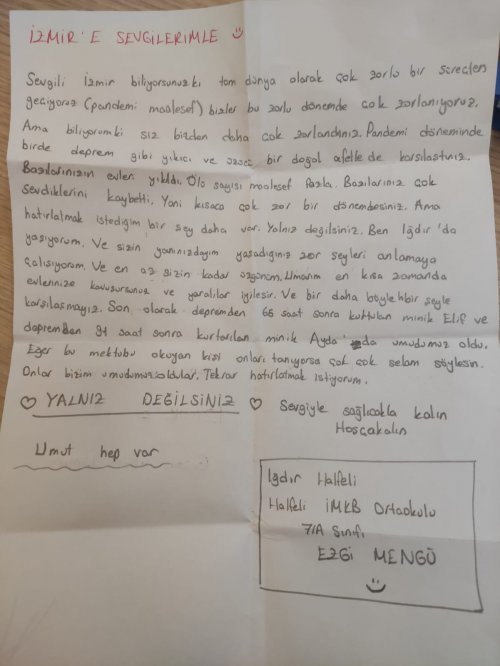 İZMİR'E SEVGİLERİMLE
Sevgili İzmir biliyorsunuzki tüm dünya olarak çok zorlu bir süreçten
geçiyoruz (pandemi maalesef) bizler bu zorlu dönemde çok zorlanıyoruz.
Ama biliyorumki siz bizden daha çok zorlandınız. Pandemi döneminde
birde deprem gibi yıkıcı ve üzücü bir doğal afetle de karşılaştınız.
Bazılarınızın evleri yıkıldı. Ölü sayısı maalesef fazla. Bazılarınız çok
sevdiklerini kaybetti. Yani kısaca çok zor bir dönemdesiniz. Ama
hatırlatmak istediğim bir şey daha var. Yalnız değilsiniz. Ben Iğdır'da
yaşıyorum. Ve sizin yanınızdayım yaşadığınız zor şeyleri anlamaya
çalışıyorum. Ve en az sizin kadar üzgünüm. Umarım en kısa zamanda
evlerinize kavuşursunuz ve yaralılar iyileşir. Ve bir daha böyle bir şeyle
karşılaşmayız. Son olarak depremden 65 saat sonra kurtulan minik Elif ve
depremden 91 saat sonra kurtarılan minik Ayda da umudumuz oldu.
Eğer bu mektubu okuyan kişi onları tanıyorsa çok çok selam söylesin.
Onlar bizim umudumuz oldular. Tekrar hatırlatmak istiyorum.
♡ YALNIZ DEĞİLSİNİZ ♡
Sevgiyle sağlıcakla kalın
Hoşçakalın
Umut hep var
Iğdır Halfeli
Halfeli İMKB Ortaokulu
7/A Sınıfı
EZGİ MENGÜ